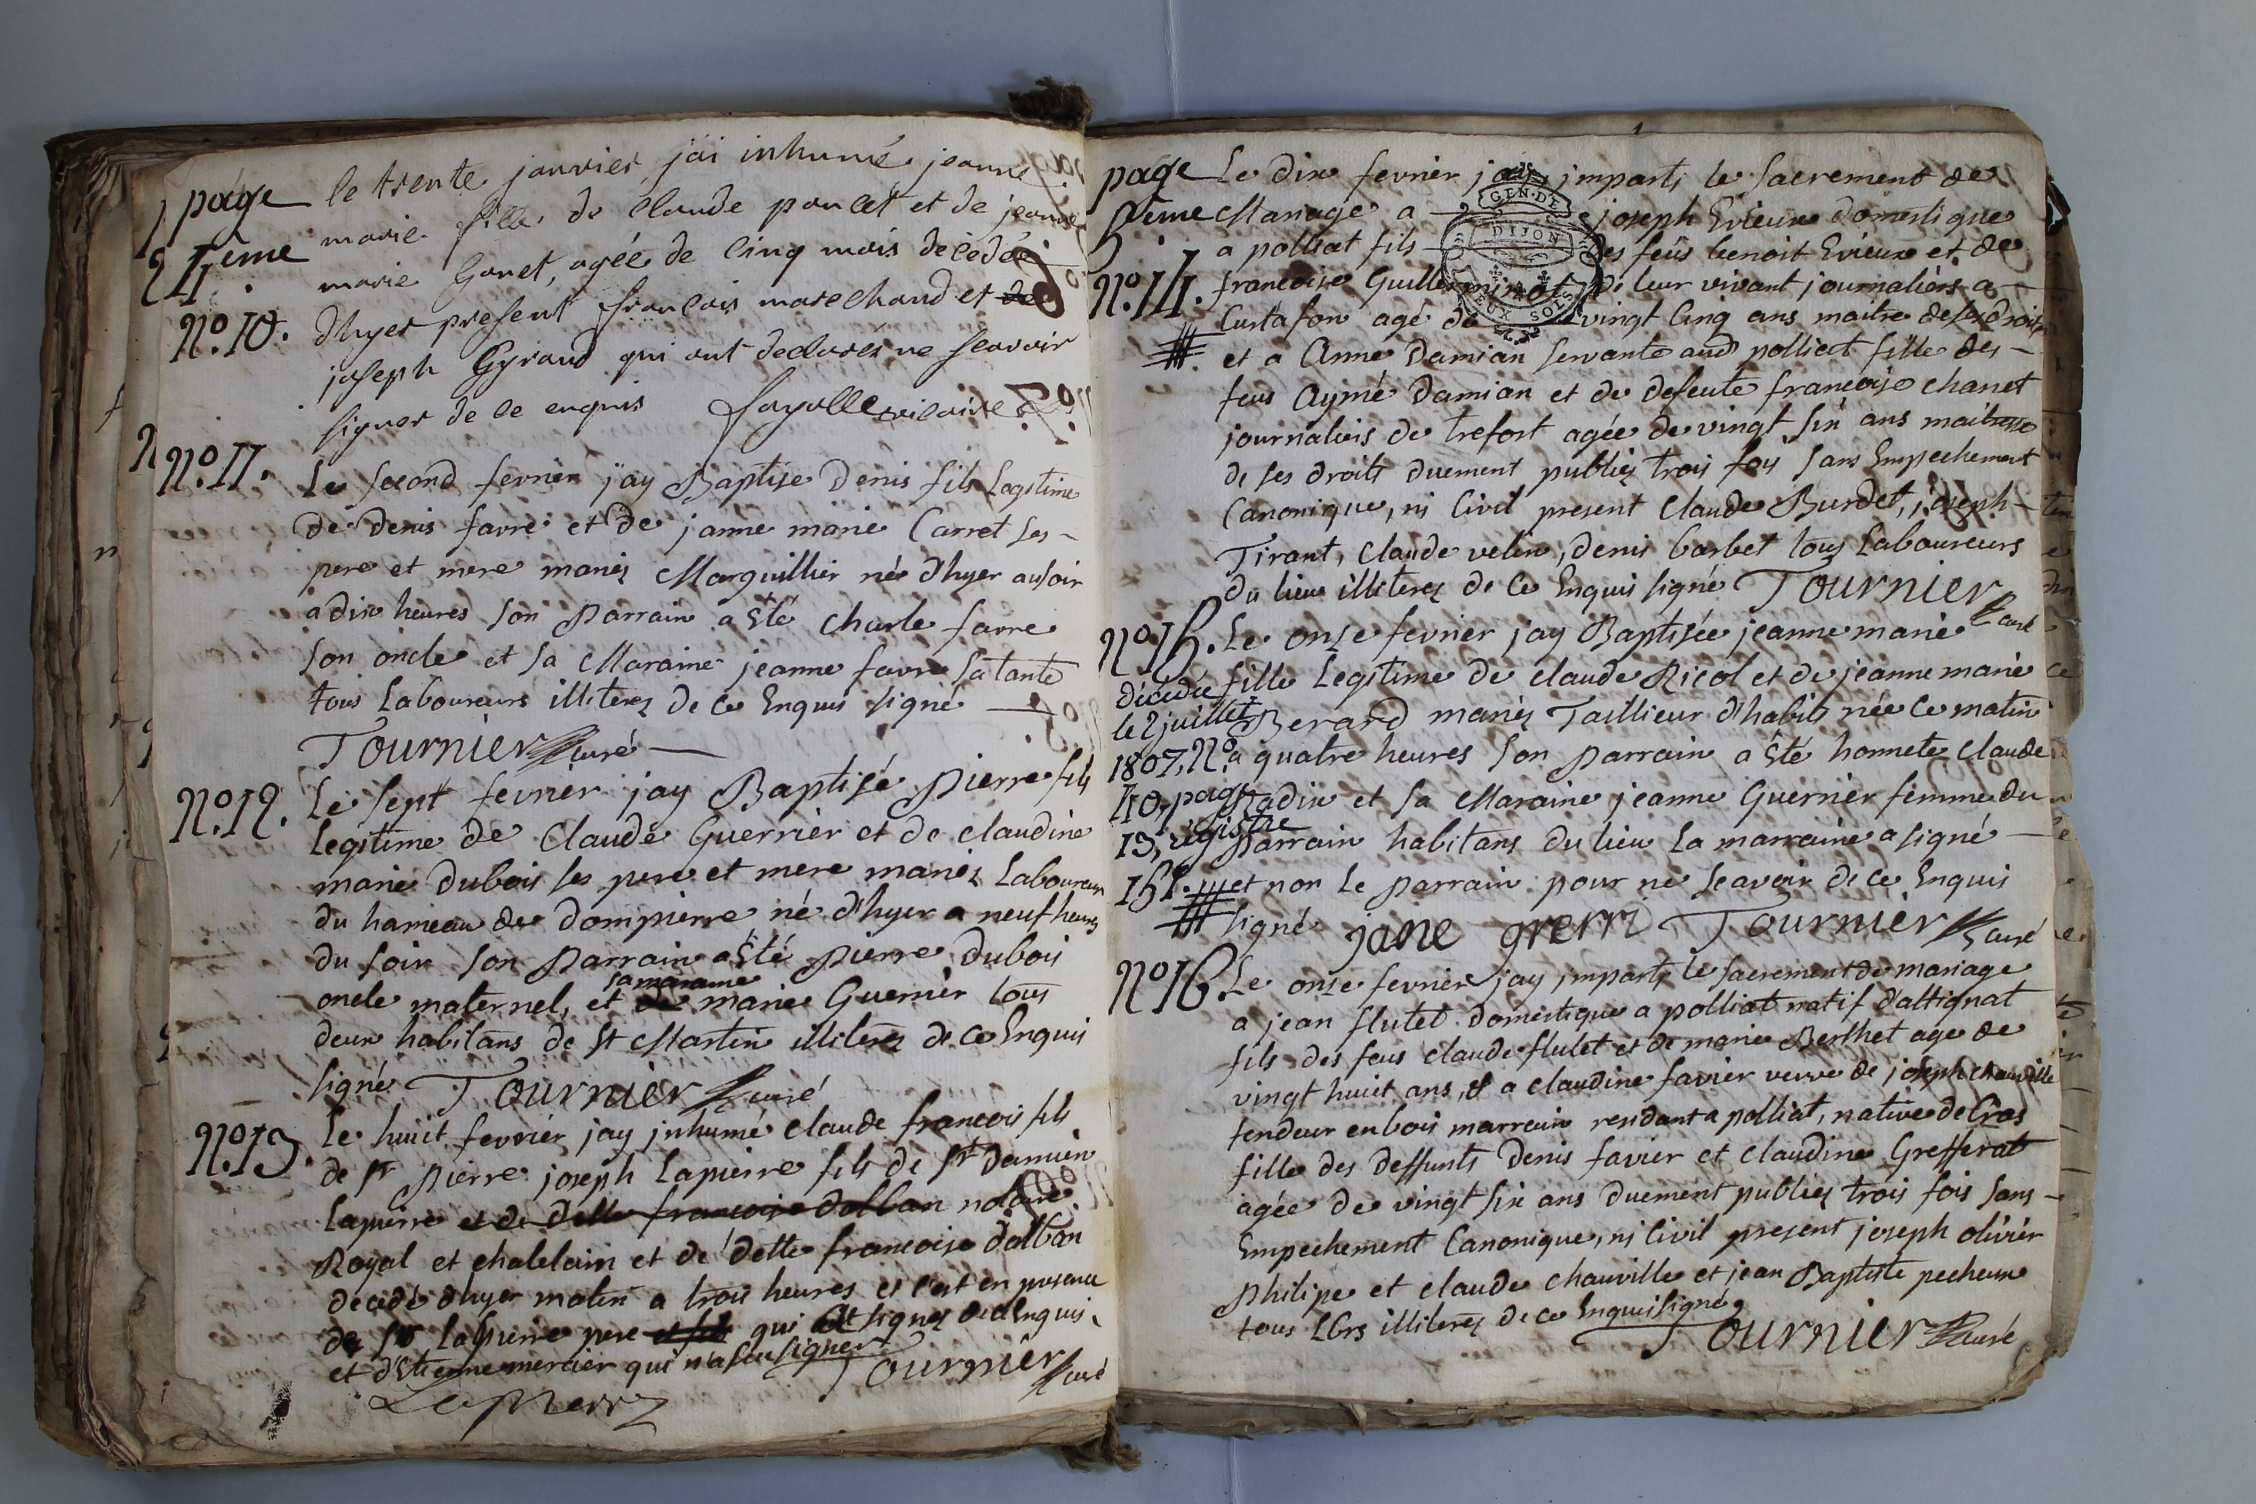 page
4ême
No. 10.
le trente janvier jai inhumé jeanne
marie fille de Claude poncet et de jeanne
marie Gonet, agée de Cinq mois decedée
dhyer present françois marechand et de
joseph Gyraud qui ont declarés ne scavoir
signer de ce enquis fayolle vicaire
No. 11.
Le second fevrier jay Baptise Denis fils Legitime
de denis favre et de janne marie Carret ses
pere et mere mariez Marguillier né d'hyer au soir
a dix heures son parrain a Eté charle favre
son oncle et sa Maraine jeanne favre sa tante
tous Laboureurs illiterez de ce Enquis signé
Tournier Curé
No. 12.
Le sept fevrier jay Baptisé pierre fils
Legitime de Claude Guerrier et de claudine
marie dubois ses pere et mere mariez Laboureurs
du hameau de dompierre né d'hyer a neuf heures
du soir son parrain a Eté pierre dubois
sa maraine
oncle maternel, et de marie Guerrier tous
deux habitans de St Martin illiterez de ce Enquis
signé Tournier curé
No. 13.
Le huit fevrier jay jnhumé claude francois fils
de Sr pierre joseph Lapierre fils de Sr Damien
Lapierre et de delle francoise dalban notaire
Royal et chatelain et de delle francoise dalban
decedé d'hyer matin a trois heures et c'est en presence
de Sr Lapierre pere et fils qui ont signez de ce Enquis
et d'Etienne mercier qui n'a sçu signer
Tournier curé
Lapierre
page
5ême
No. 14.
Le dix fevrier jay imparti le Sacrement de
Mariage a joseph Evieux domestique
a polliat fils des feüs benoit Evieux et de
francoise Guilleminot de leur vivant journaliers a
Curtafon agé de vingt Cinq ans maitre de ses droits
et a Anne Damian servante aud polliat fille des
feus Aymé Damian et de defeute francoise chanet
journaliers de trefort agée de vingt six ans maitresse
de ses droits duement publiez trois fois sans Empechement
Canonique, ni Civil present Claude Burdet, joseph
Tirant, Claude velin, denis barbet tous Laboureurs
du lieu illiterez de ce Enquis signé Tournier
curé
GEN. DE
DIJON
DEUX SOLS
No. 15.
Le onze fevrier jay Baptisée jeanne marie
fille Legitime de claude Nicol et de jeanne marie
Berard mariez Taillieur d'habits née ce matin
a quatre heures son parrain a Eté honnete claude
Radix et sa Maraine jeanne Guerrier femme du
parrain habitans du lieu La marraine a signé
et non le parrain pour ne sçavoir de ce Enquis
signé jane grerri Tournier curé
décédée
le 2 juillet
1807, No.
40, page
13, régistre
151.
No. 16.
Le onze fevrier jay imparti le sacrement de mariage
a jean flutet domestique a polliat natif d'attignat
fils des feus claude flutet et de marie Berthet age de
vingt huit ans, et a claudine favier veuve de joseph chauville
fendeur en bois marrain residant a polliat, native de Cras
fille des deffunts Denis favier et claudine Grefferat
agée de vingt six ans duement publiez trois fois sans
Empechement Canonique, ni Civil present joseph olivier
philipe et claude chauville et jean Baptiste pecheux
tous LBrs illiterez de ce Enquis signé
Tournier curé